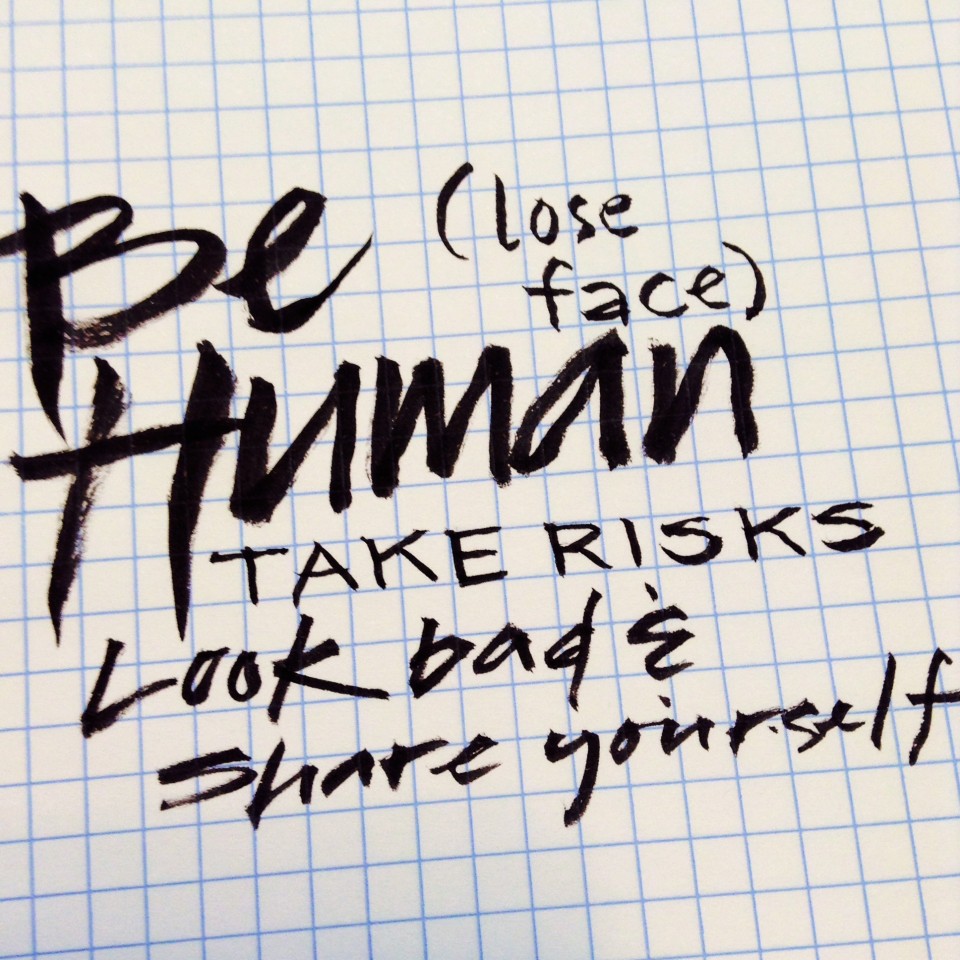 Be (lose
face)
Human
TAKE RISKS
Look bad &
share yourself